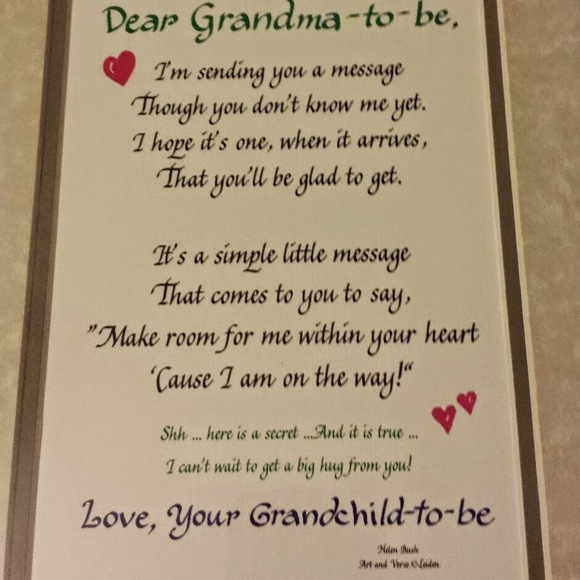 Dear Grandma-to-be,
I'm sending you a message
Though you don't know me yet.
I hope it's one, when it arrives,
That you'll be glad to get.
It's a simple little message
That comes to you to say,
"Make room for me within your heart
'Cause I am on the way!"
Shh ... here is a secret ...And it is true ...
I can't wait to get a big hug from you!
Love, Your Grandchild-to-be
Helen Bush
Art and Verse © Laden